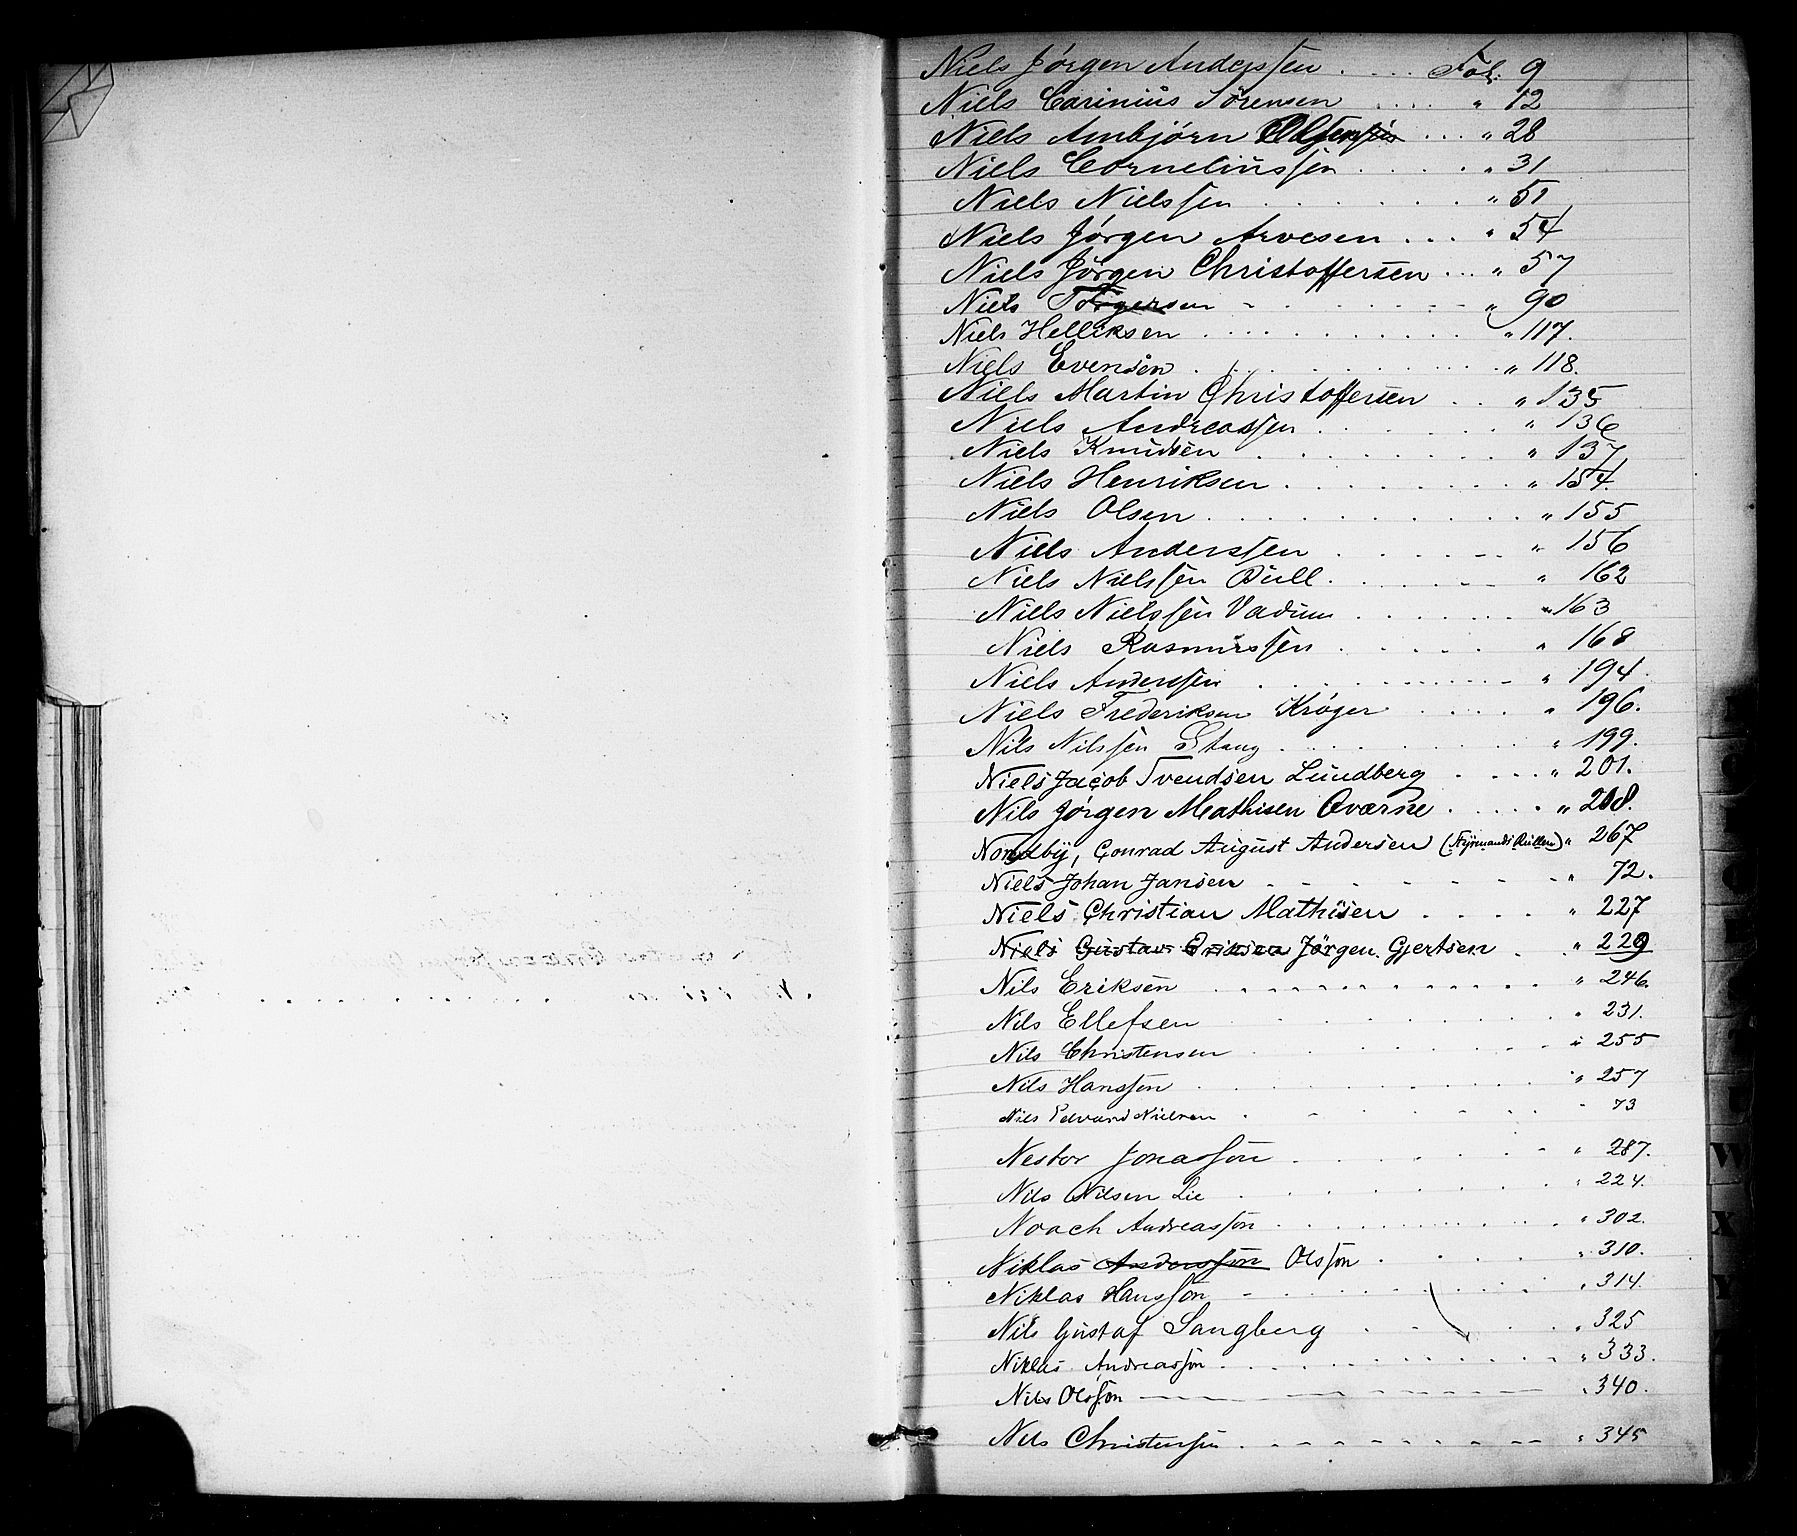 Niels Jörgen Anderssen . . . . Fol. 9
Niels Carinius Sörensen . . . . " 12
Niels Ambjörn . . . " 28
Niels Corneliussen . . . . . " 31
Niels Nielssen . . . . . . . " 51
Niels Jörgen Arvesen . . . " 54
Niels Jörgen Christoffersen . . . " 57
Niels Törgersen - . . . . . " 90
Niels Helliksen . . . . . . . . . " 117.
Niels Evensen . . . . . . . . " 118.
Niels Martin Christoffersen . . " 135
Niels Andreassen . . . . . . " 136
Niels Knudsen . . . . . . . " 137
Niels Henriksen . . . . . . . " 154.
Niels Olsen . . . . . . . . . " 155
Niels Anderssen . . . . . . " 156
Niels Nielssen Bull . . . . . " 162
Niels Nielssen Vadum . . . . . . " 163
Niels Rasmussen . . . . . " 168
Niels Anderssen . . . . . . . . " 194.
Niels Frederiksen Kröger . . . . " 196.
Nils Nilssen Stang . . . . . . . " 199.
Niels Jacob Svendsen Lundberg . . . . " 201.
Nils Jörgen Mathisen Qværne . . . . " 208.
Nordby, Conrad August Andersen (Styrmands Rullen) " 267
Niels Johan Jansen - - - - - - " 72.
Niels Christian Mathisen . . . . " 227
Niels Gustav Eriksen Jörgen Gjertsen . . " 229
Nils Eriksen . . . . . . . . . . . " 246.
Nils Ellefsen . . . . . . . . " 231.
Nils Christensen . . . . . . . " 255
Nils Hanssen . . . . . . . . . " 257
Nils Edvard Nielsen . - . - . . . - 73
Nestor Jonasson . . . . . . " 287.
Nils Nilsen Lie . . . . . . . . " 224.
Noach Andreasson . . . . . . . . " 302.
Niklas Andersson Olsson . . . . " 310.
Niklas Hansson - . . . . . . . " 314.
Nils Gustaf Sangberg . . - . . " 325
Niklas Andreasson . . . . . . . . . " 333.
Nils Olsson - - - - - - - - " 340.
Nils Christensen . - - - - - - - " 345
W
X
Y